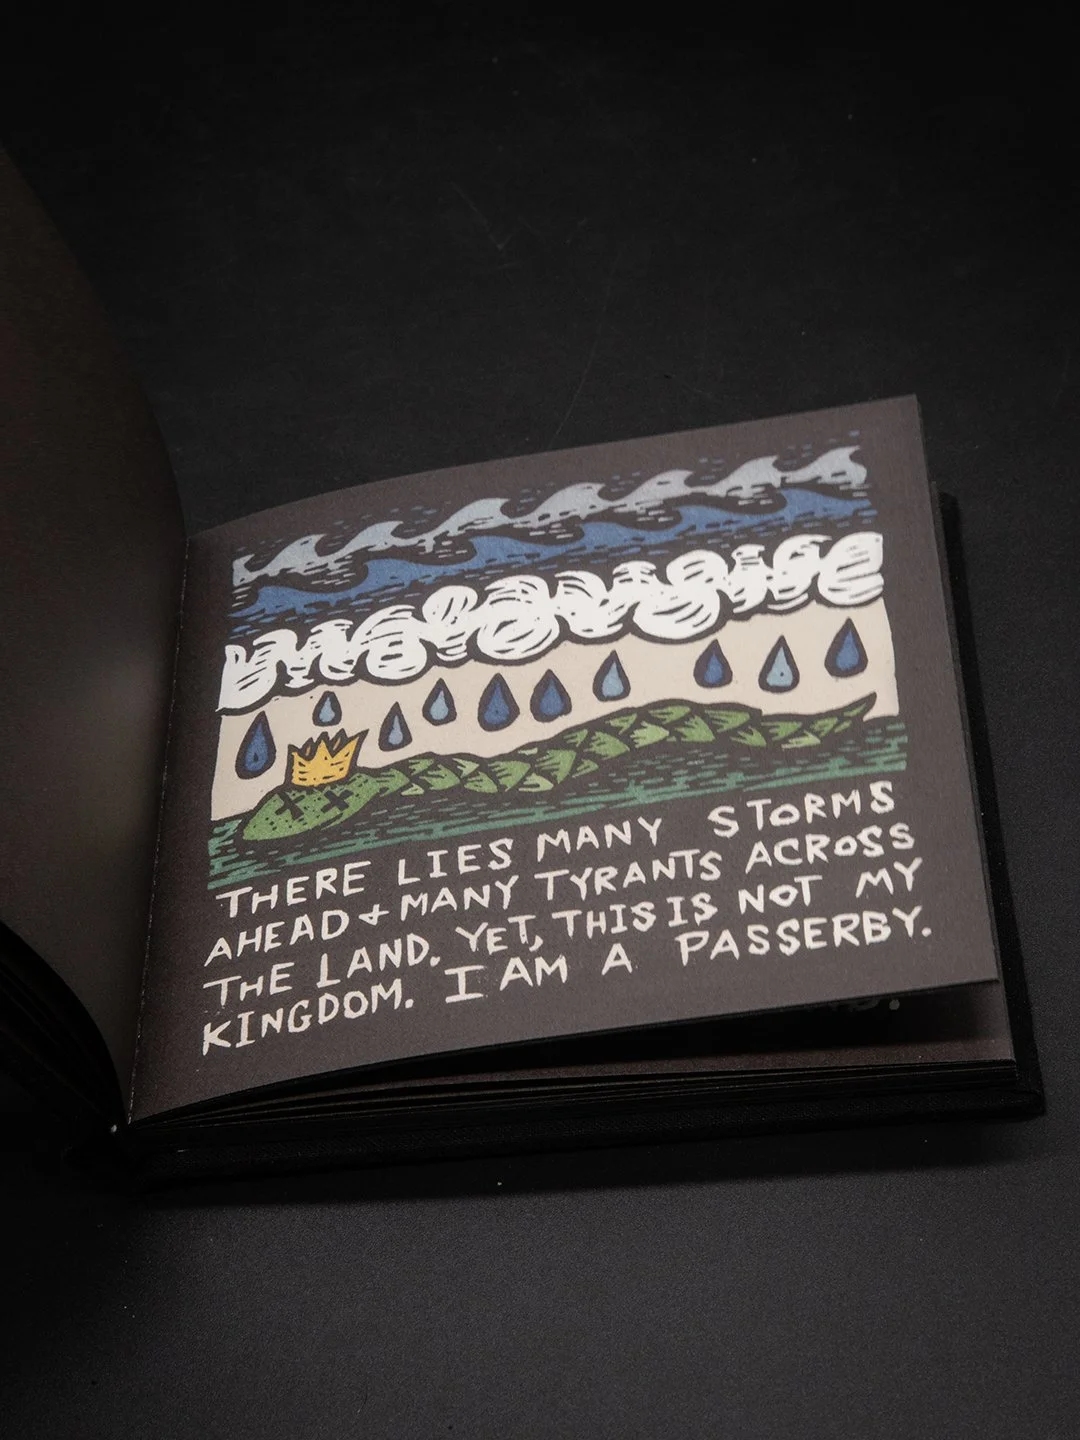 THERE LIES MANY STORMS
AHEAD + MANY TYRANTS ACROSS
THE LAND. YET, THIS IS NOT MY
KINGDOM. I AM A PASSERBY.